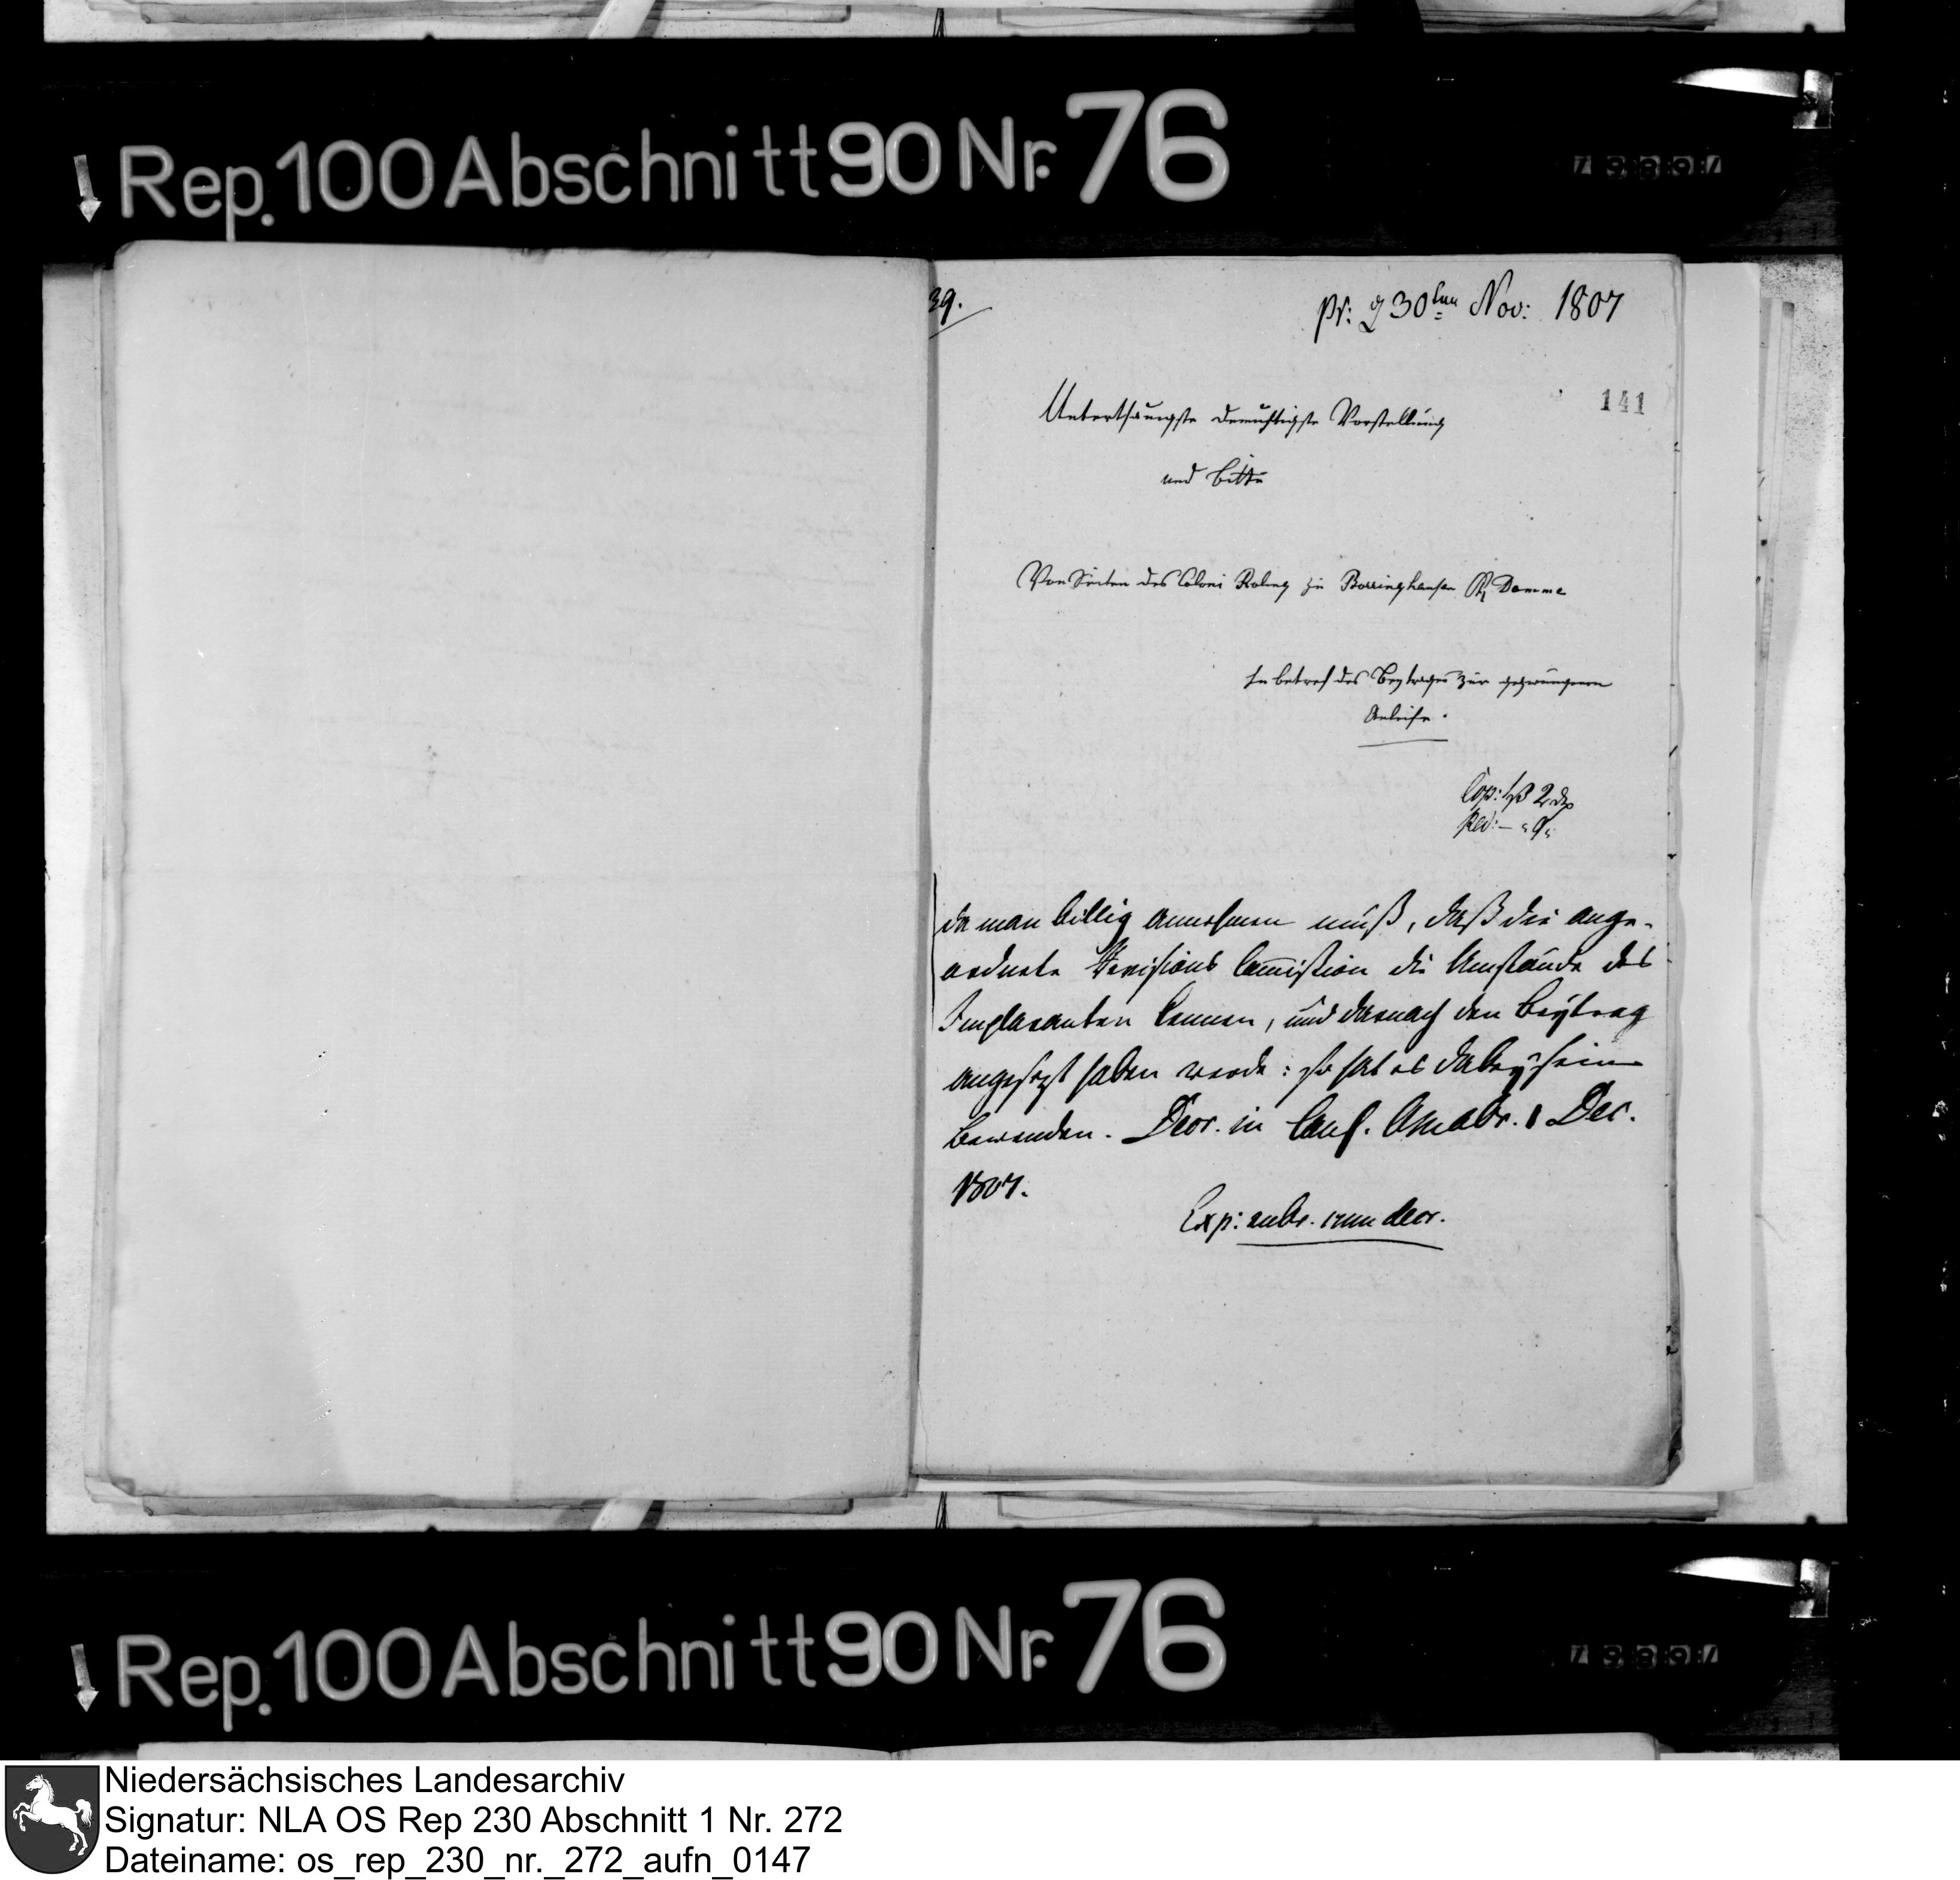 Rep. 100 Abschnitt 90 Nr. 76
39.
pr: d 30ten Nov: 1807
141
Unterthänigste demüthigste Vorstellung
und Bitte
Von Seiten des Coloni Roling zu Borringhausen Damme
In betref des Beytrages zur gezwungenen
Anleihe.
Cop: 2
da man billig annehmen muß, daß die ange-
ordnete Revisions Commißion die Umstände des
Imploranten kennen, und darnach den Beytrag
angesezt haben werde: so hat es dabey sein
bewenden. Decr. in Cons. Osnabr. 1 Dec.
1807.
Exp: decr.
Rep. 100 Abschnitt 90 Nr. 76
Niedersächsisches Landesarchiv
Signatur: NLA OS Rep 230 Abschnitt 1 Nr. 272
Dateiname: os_rep_230_nr._272_aufn_0147